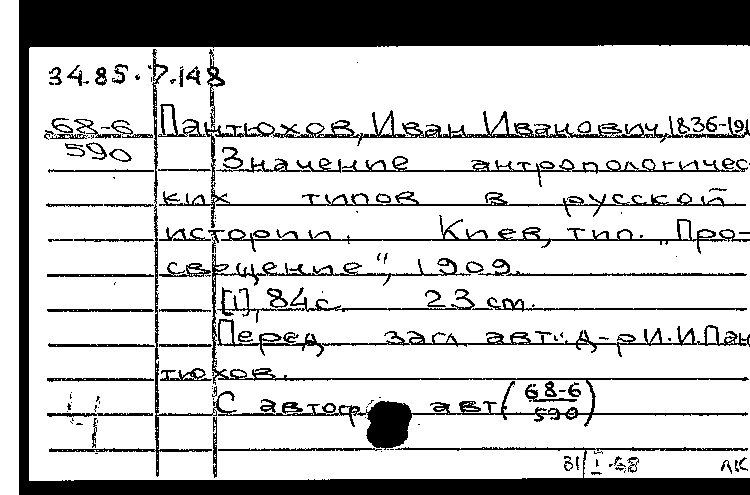 34.85.7.148
68-6 Пантюхов, Иван Иванович, 1836-191
590 Значение антропологичес
ких типов в русской
истории. Киев, тип. „Про-
свещение“, 1909.
[1], 84 с. 23 см.
Перед загл. авт.: д-р И.И.Пан
тюхов.
С автогр авт. (68-6
590)
4
31/I-68 ЛК